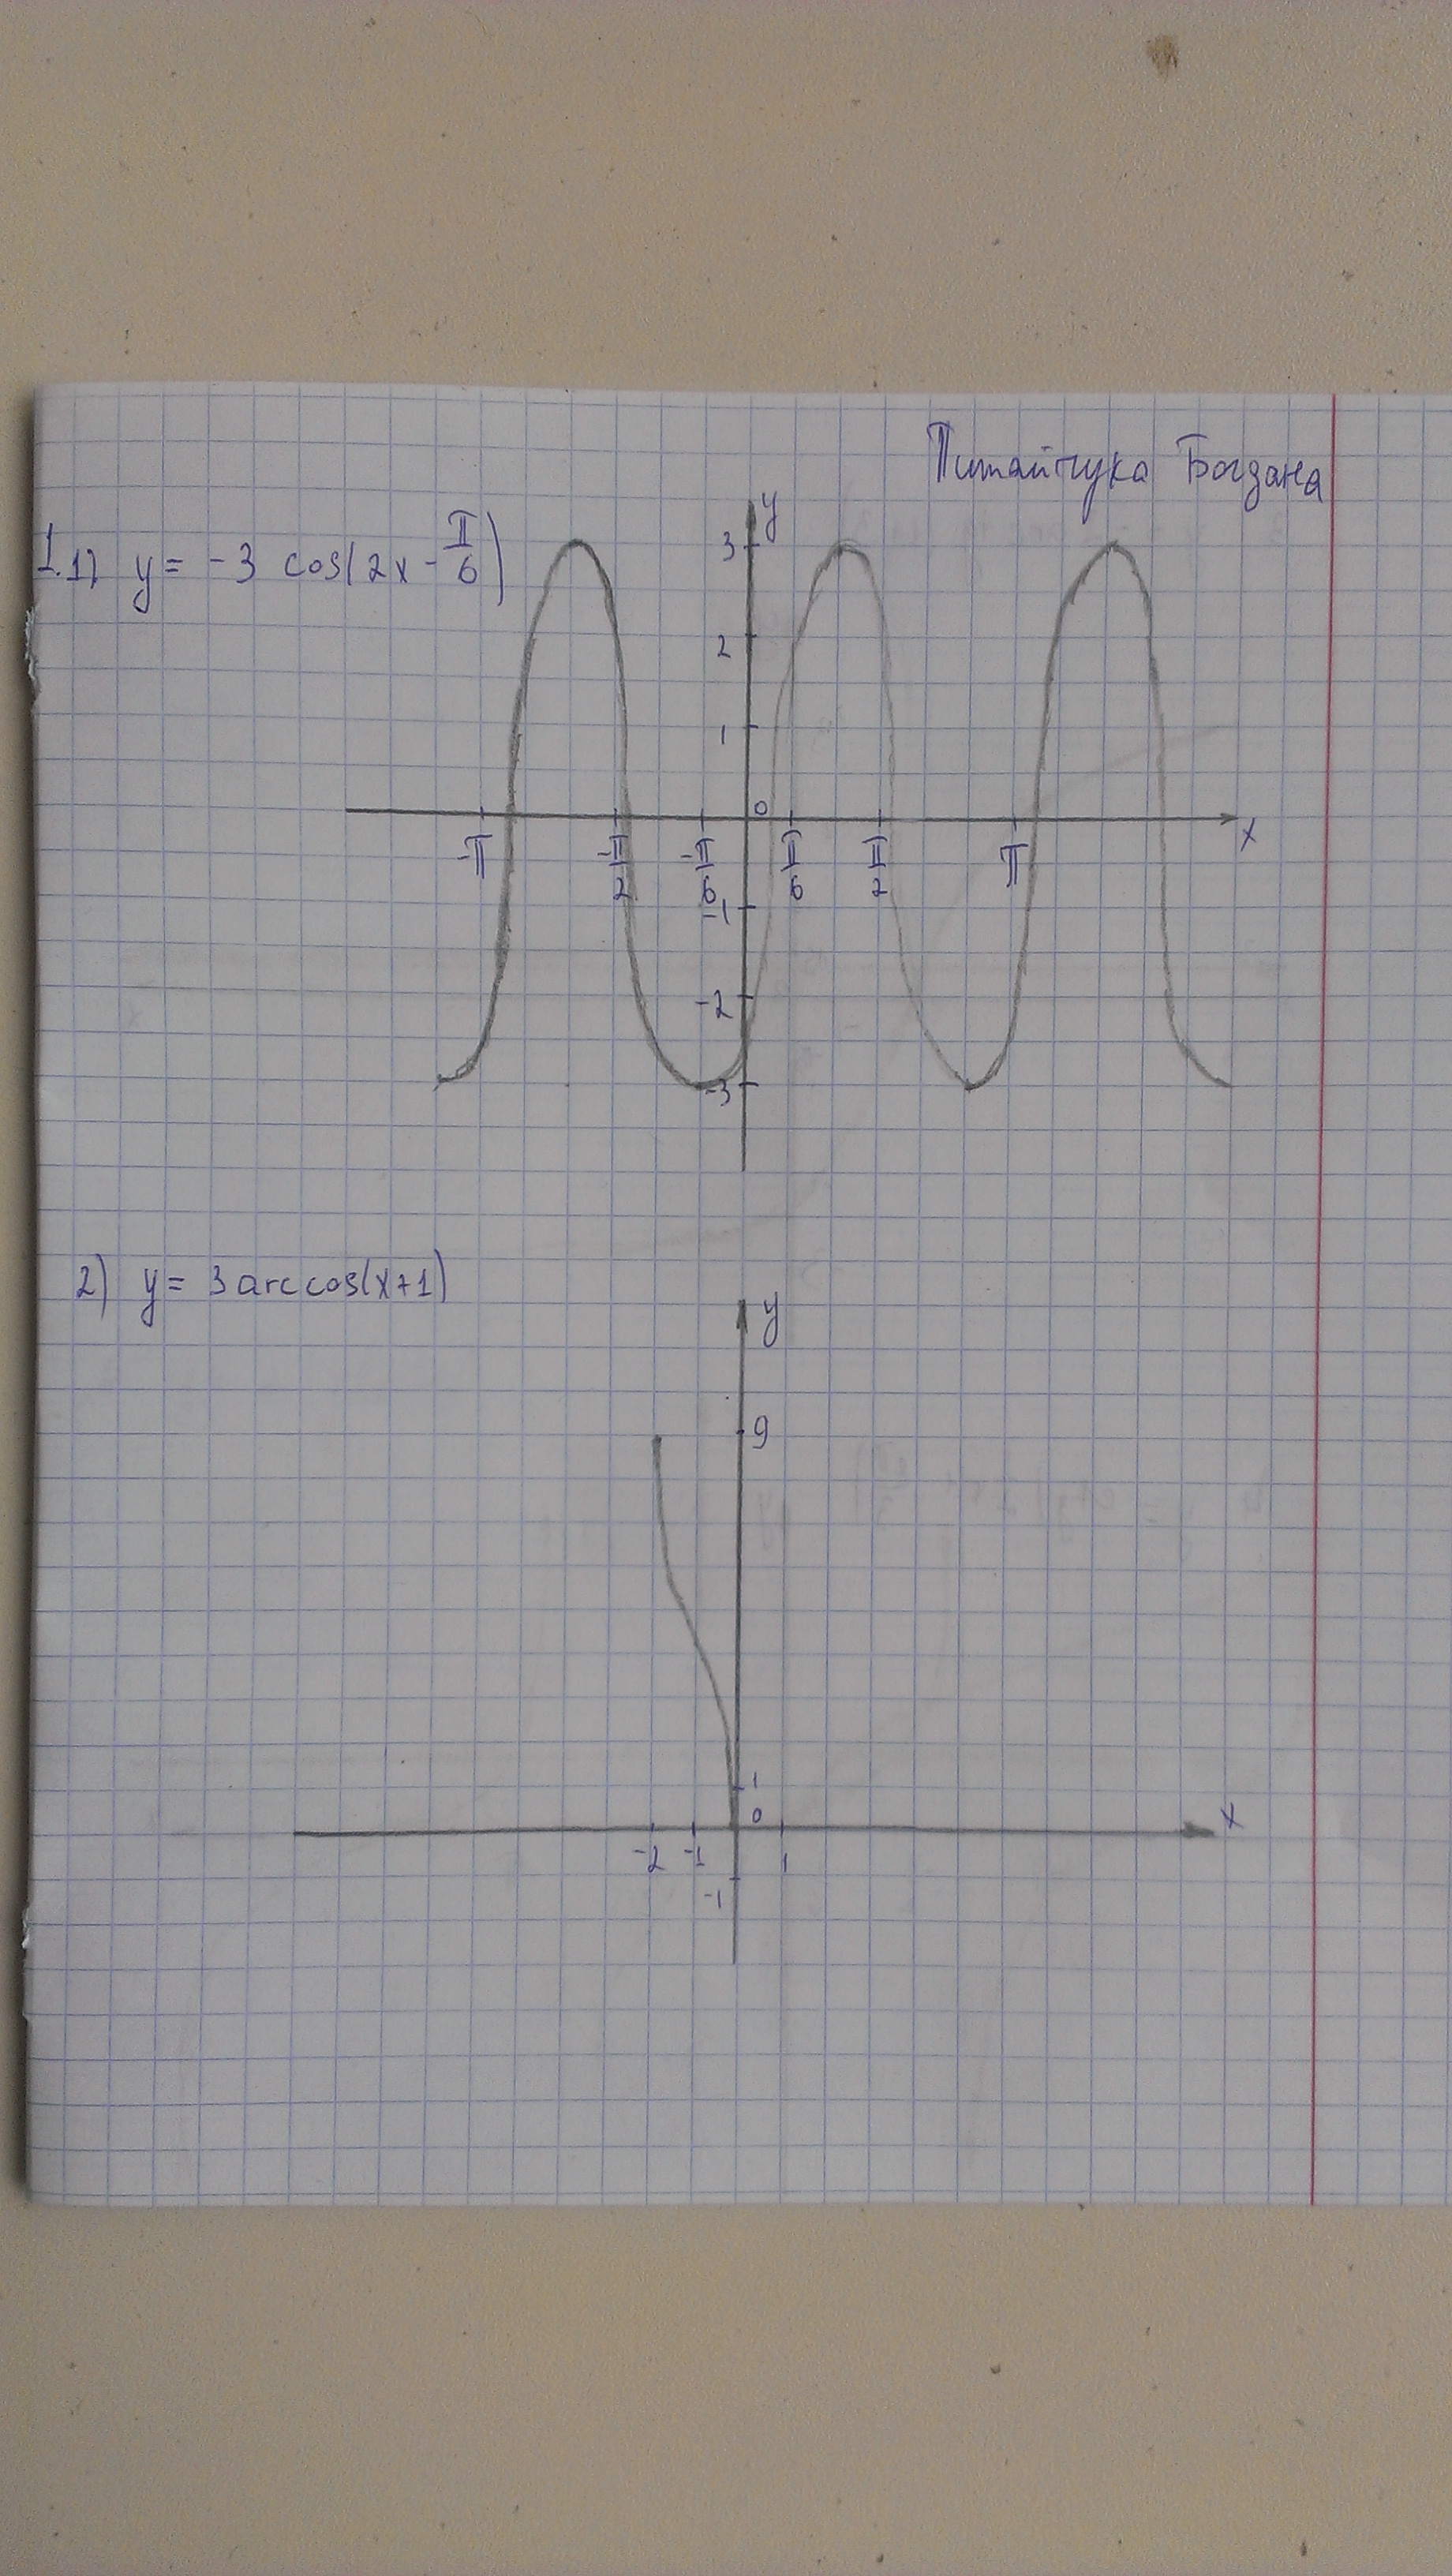 Питайчука Богдана
1.1) y = -3 cos(2x - π/6)
y
3
2
1
0
-π -π/2 -π/6 π/6 π/2 π x
-1
-2
-3
2) y = 3 arccos(x+1)
y
9
1
0 x
-2 -1 1
-1